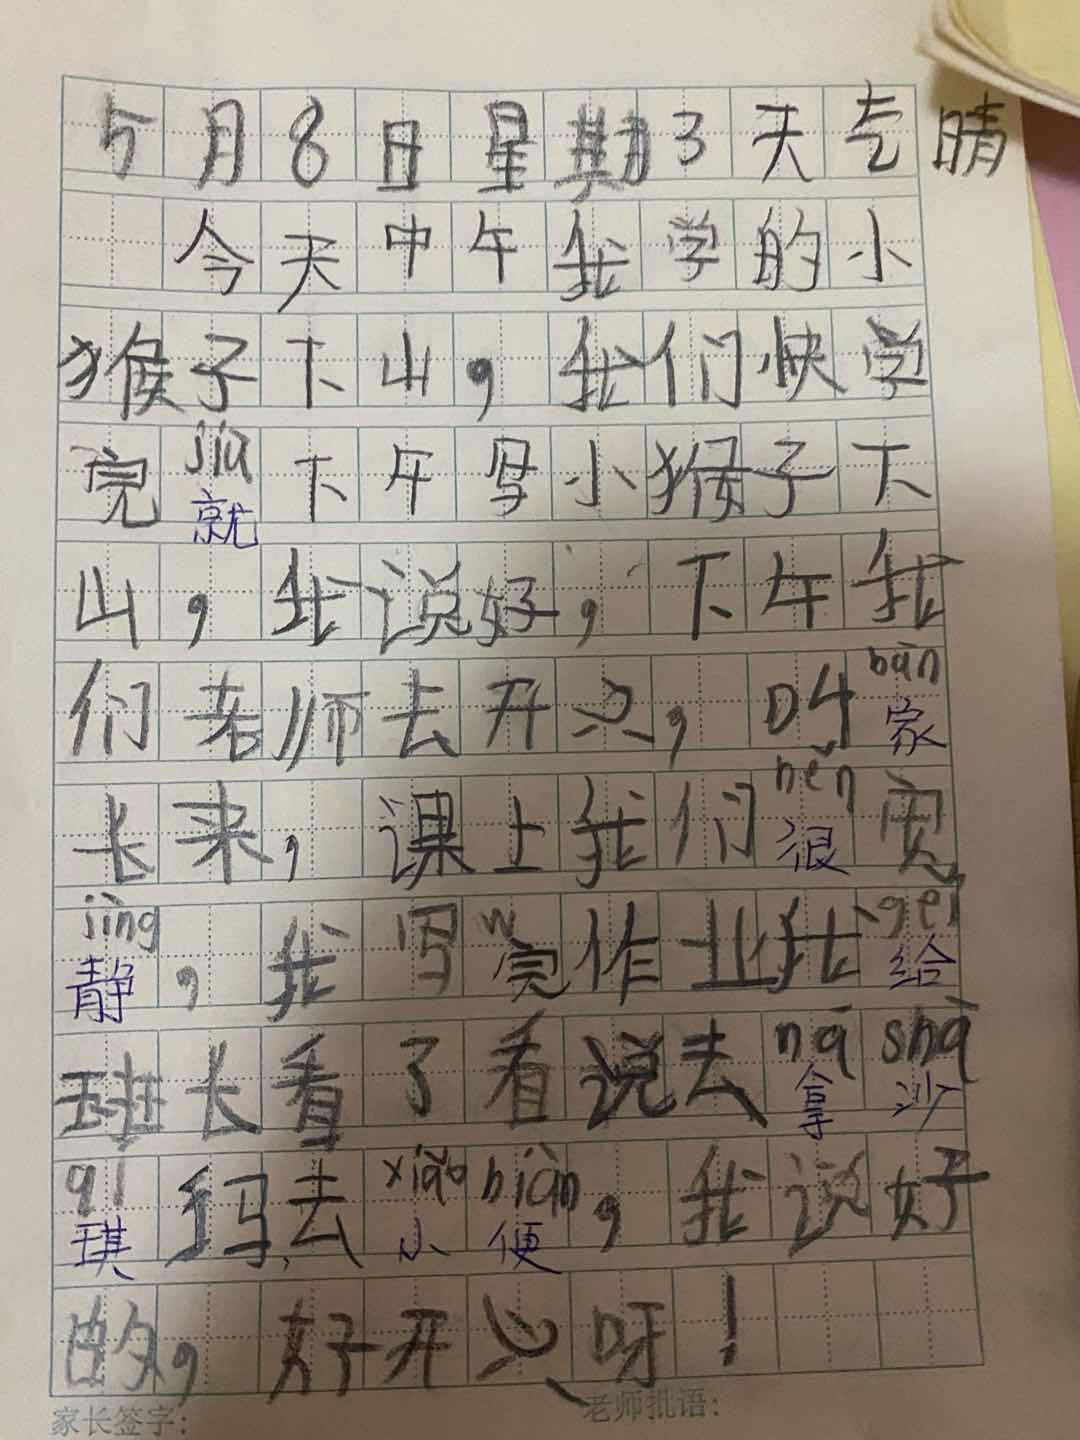 5月8日星期3天气晴
今天中午我学的小
猴子下山,我们快学
完jiù就下午写小猴子下
山,我说好,下午我
们老师去开心,叫bān家
长来,课上我们hěn很安
jìng静,我写w完作业我gěi给
班长看了看说去ná拿shā沙
qí琪妈去xiǎo小biàn便,我说好
的,好开心呀!
家长签字: 老师批语: